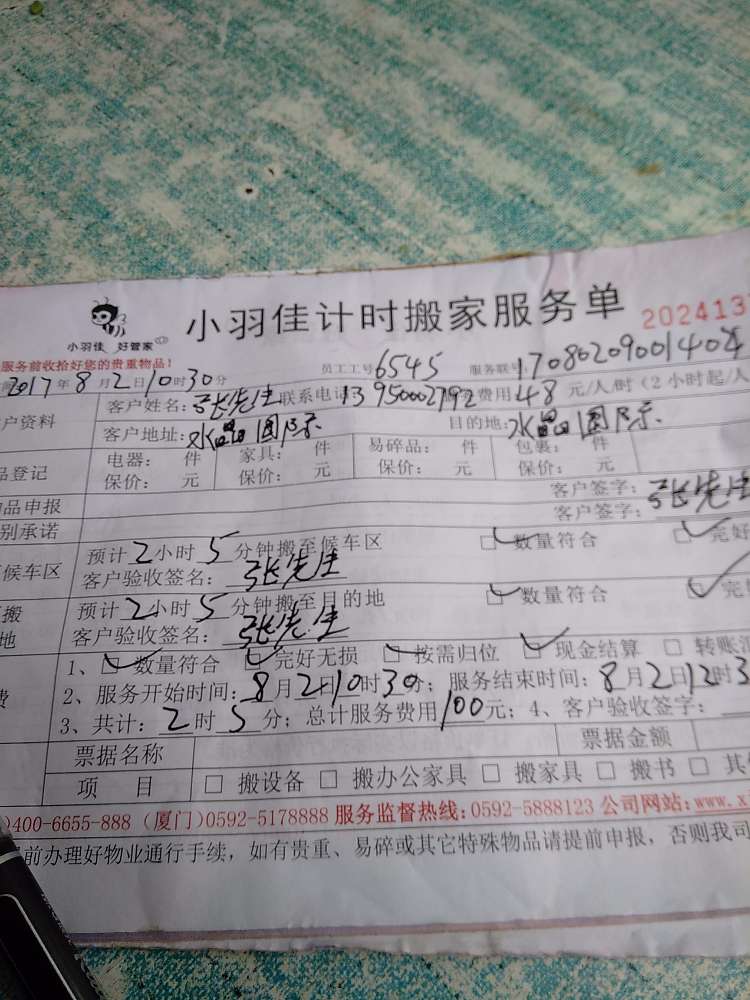 小羽佳 好管家
小羽佳计时搬家服务单 202413
服务前收拾好您的贵重物品! 员工工号6545 服务联号17080209001404
2017年8月2日10时30分
户资料 客户姓名:张先生 联系电话13950002792 费用:48元/人/时(2小时起/人
客户地址:水晶国际 目的地:水晶国际
品登记 电器: 件 家具: 件 易碎品: 件 包裹: 件
保价: 元 保价: 元 保价: 元 保价: 元
物品申报 客户签字:张先生
别承诺 客户签字:张先生
候车区 预计2小时5分钟搬至候车区 数量符合 完好
客户验收签名:张先生
搬 预计2小时5分钟搬至目的地 数量符合 完
地 客户验收签名:张先生
1、数量符合 完好无损 按需归位 现金结算 转账
费 2、服务开始时间:8月2日10时30分;服务结束时间:8月2日12时3
3、共计:2时5分;总计服务费用100元;4、客户验收签字:
票据名称 票据金额
项 目 搬设备 搬办公家具 搬家具 搬书 其
)400-6655-888 (厦门)0592-5178888 服务监督热线:0592-5888123 公司网站:www.x
前办理好物业通行手续,如有贵重、易碎或其它特殊物品请提前申报,否则我司